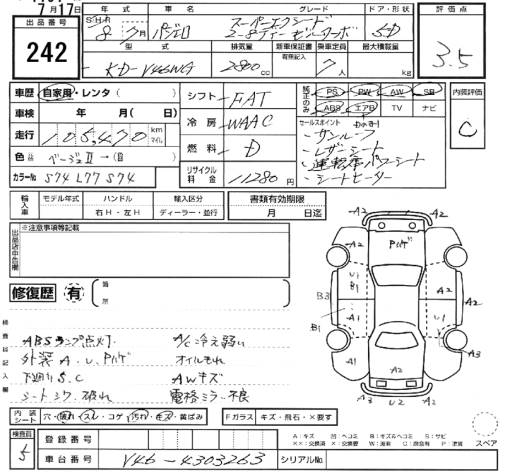 7月17日
出品番号
242
年式 車名 グレード ドア・形状
S・H・R 8年 7月 パジェロ スーパーエクシード 5D
2-8ディーゼルターボ
型式 排気量 新車保証書 乗車定員 最大積載量
有無記入
KD-V46WG 2800cc 7人 kg
評価点
3.5
車歴 自家用・レンタ( )
車検 年 月( )
走行 105,470 km マイル
色 ベージュⅡ→( )
カラーNo. 574 L77 574
シフト FAT
冷房 WAAC
燃料 D
リサイクル料金 11280円
純正のみ PS PW AW SR
ABS エアB TV ナビ
セールスポイント
・サンルーフ
・レザーシート
・運転席パワーシート
・シートヒーター
内装評価
C
輸入車 モデル年式 ハンドル 輸入区分
右H・左H ディーラー・並行
書類有効期限
月 日迄
出品店申告欄
※注意事項等記載
修復歴 有 箇所
検査員記入欄
ABSランプ点灯 A/C冷え弱い
外装A.U.Pハゲ オイルもれ
下廻りS.C AWキズ
シートシワ 破れ 電格ミラー不良
A2 A2 A2
Pハゲ
U1 A2
B3 A2
B1 U1
A1 A1 A3
A3 U2 A2
内装シート 穴・破れ・スレ・コゲ・汚れ・キズ・黄ばみ
Fガラス キズ・飛石・×要す
検査員
5
登録番号
車台番号 V46-4303263 シリアルNo.
A:キズ U:ヘコミ B:キズ&ヘコミ S:サビ
××:交換済 ×:要交換 W:波 C:腐食 P:塗装
スペア